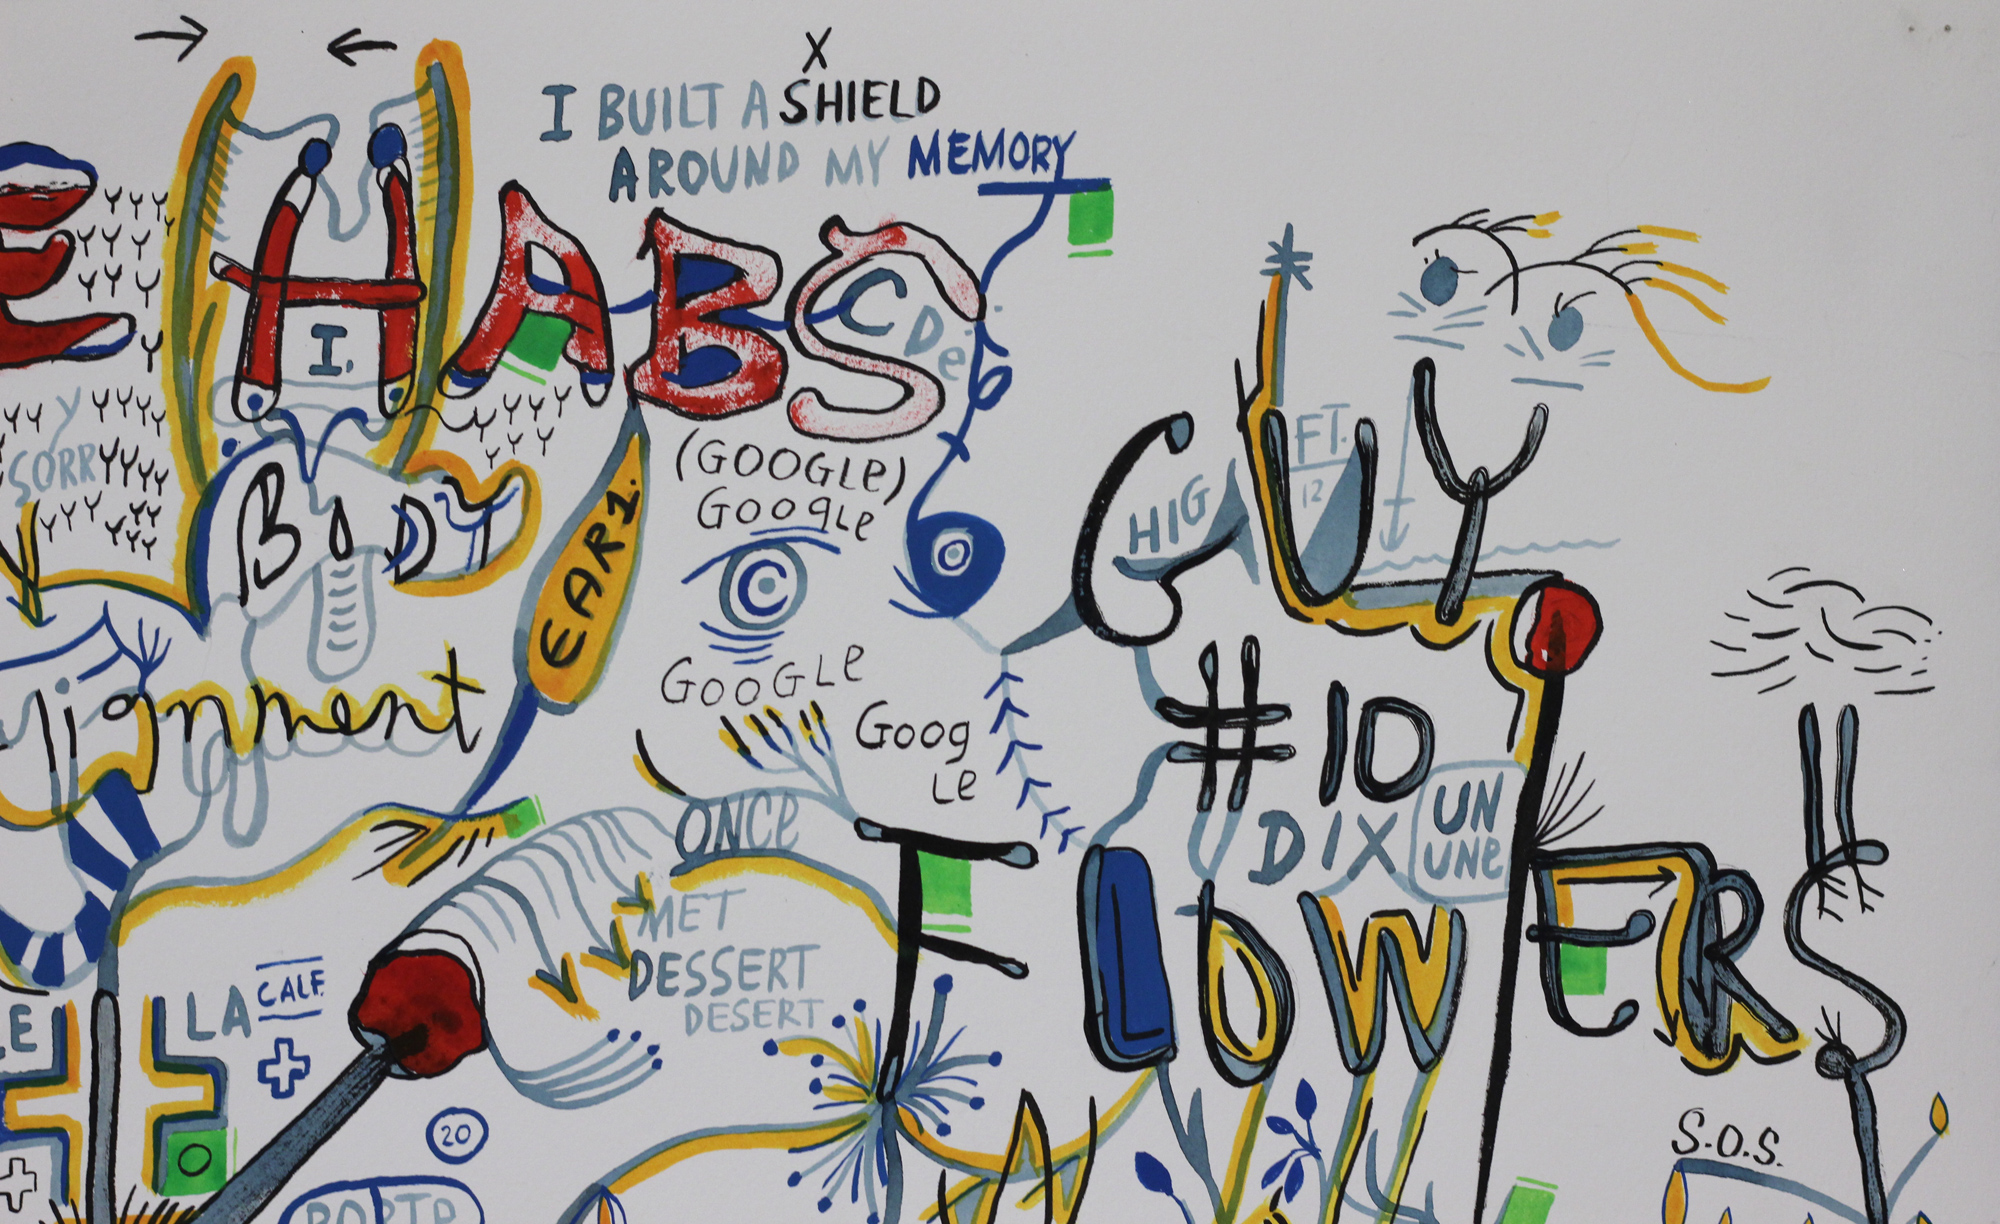 X
I BUILT A SHIELD
AROUND MY MEMORY
EHABS
I.
C D e
SORRY
BODY
EAR 1.
(GOOGLe)
GOOGLe
C
GOOGLe
GOOG
Le
GUY
HIG
FT.
12
#10
DIX
UN
UNe
ignment
ONCe
MET
DESSERT
DESERT
FLOWERS
LE
LA
CALF.
20
S.O.S.